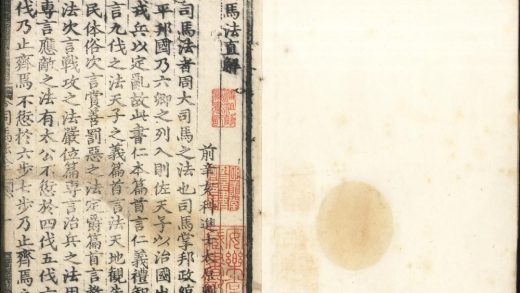 馬法直解
前辛亥科進士太原劉
司馬法者周大司馬之法也司馬掌邦政統
平邦國乃六卿之列入則佐天子以治國出
戎兵以定亂故此書仁本篇首言仁義禮智
言九伐之法天子之義篇首言法天地觀先
民体俗次言賞善罰惡之法定爵篇首言教
法次言戰攻之法嚴位篇專言治兵之法用
專言應敵之法有太公不愆於四伐五伐六
伐乃止齊焉不愆於六步七步乃止齊焉之